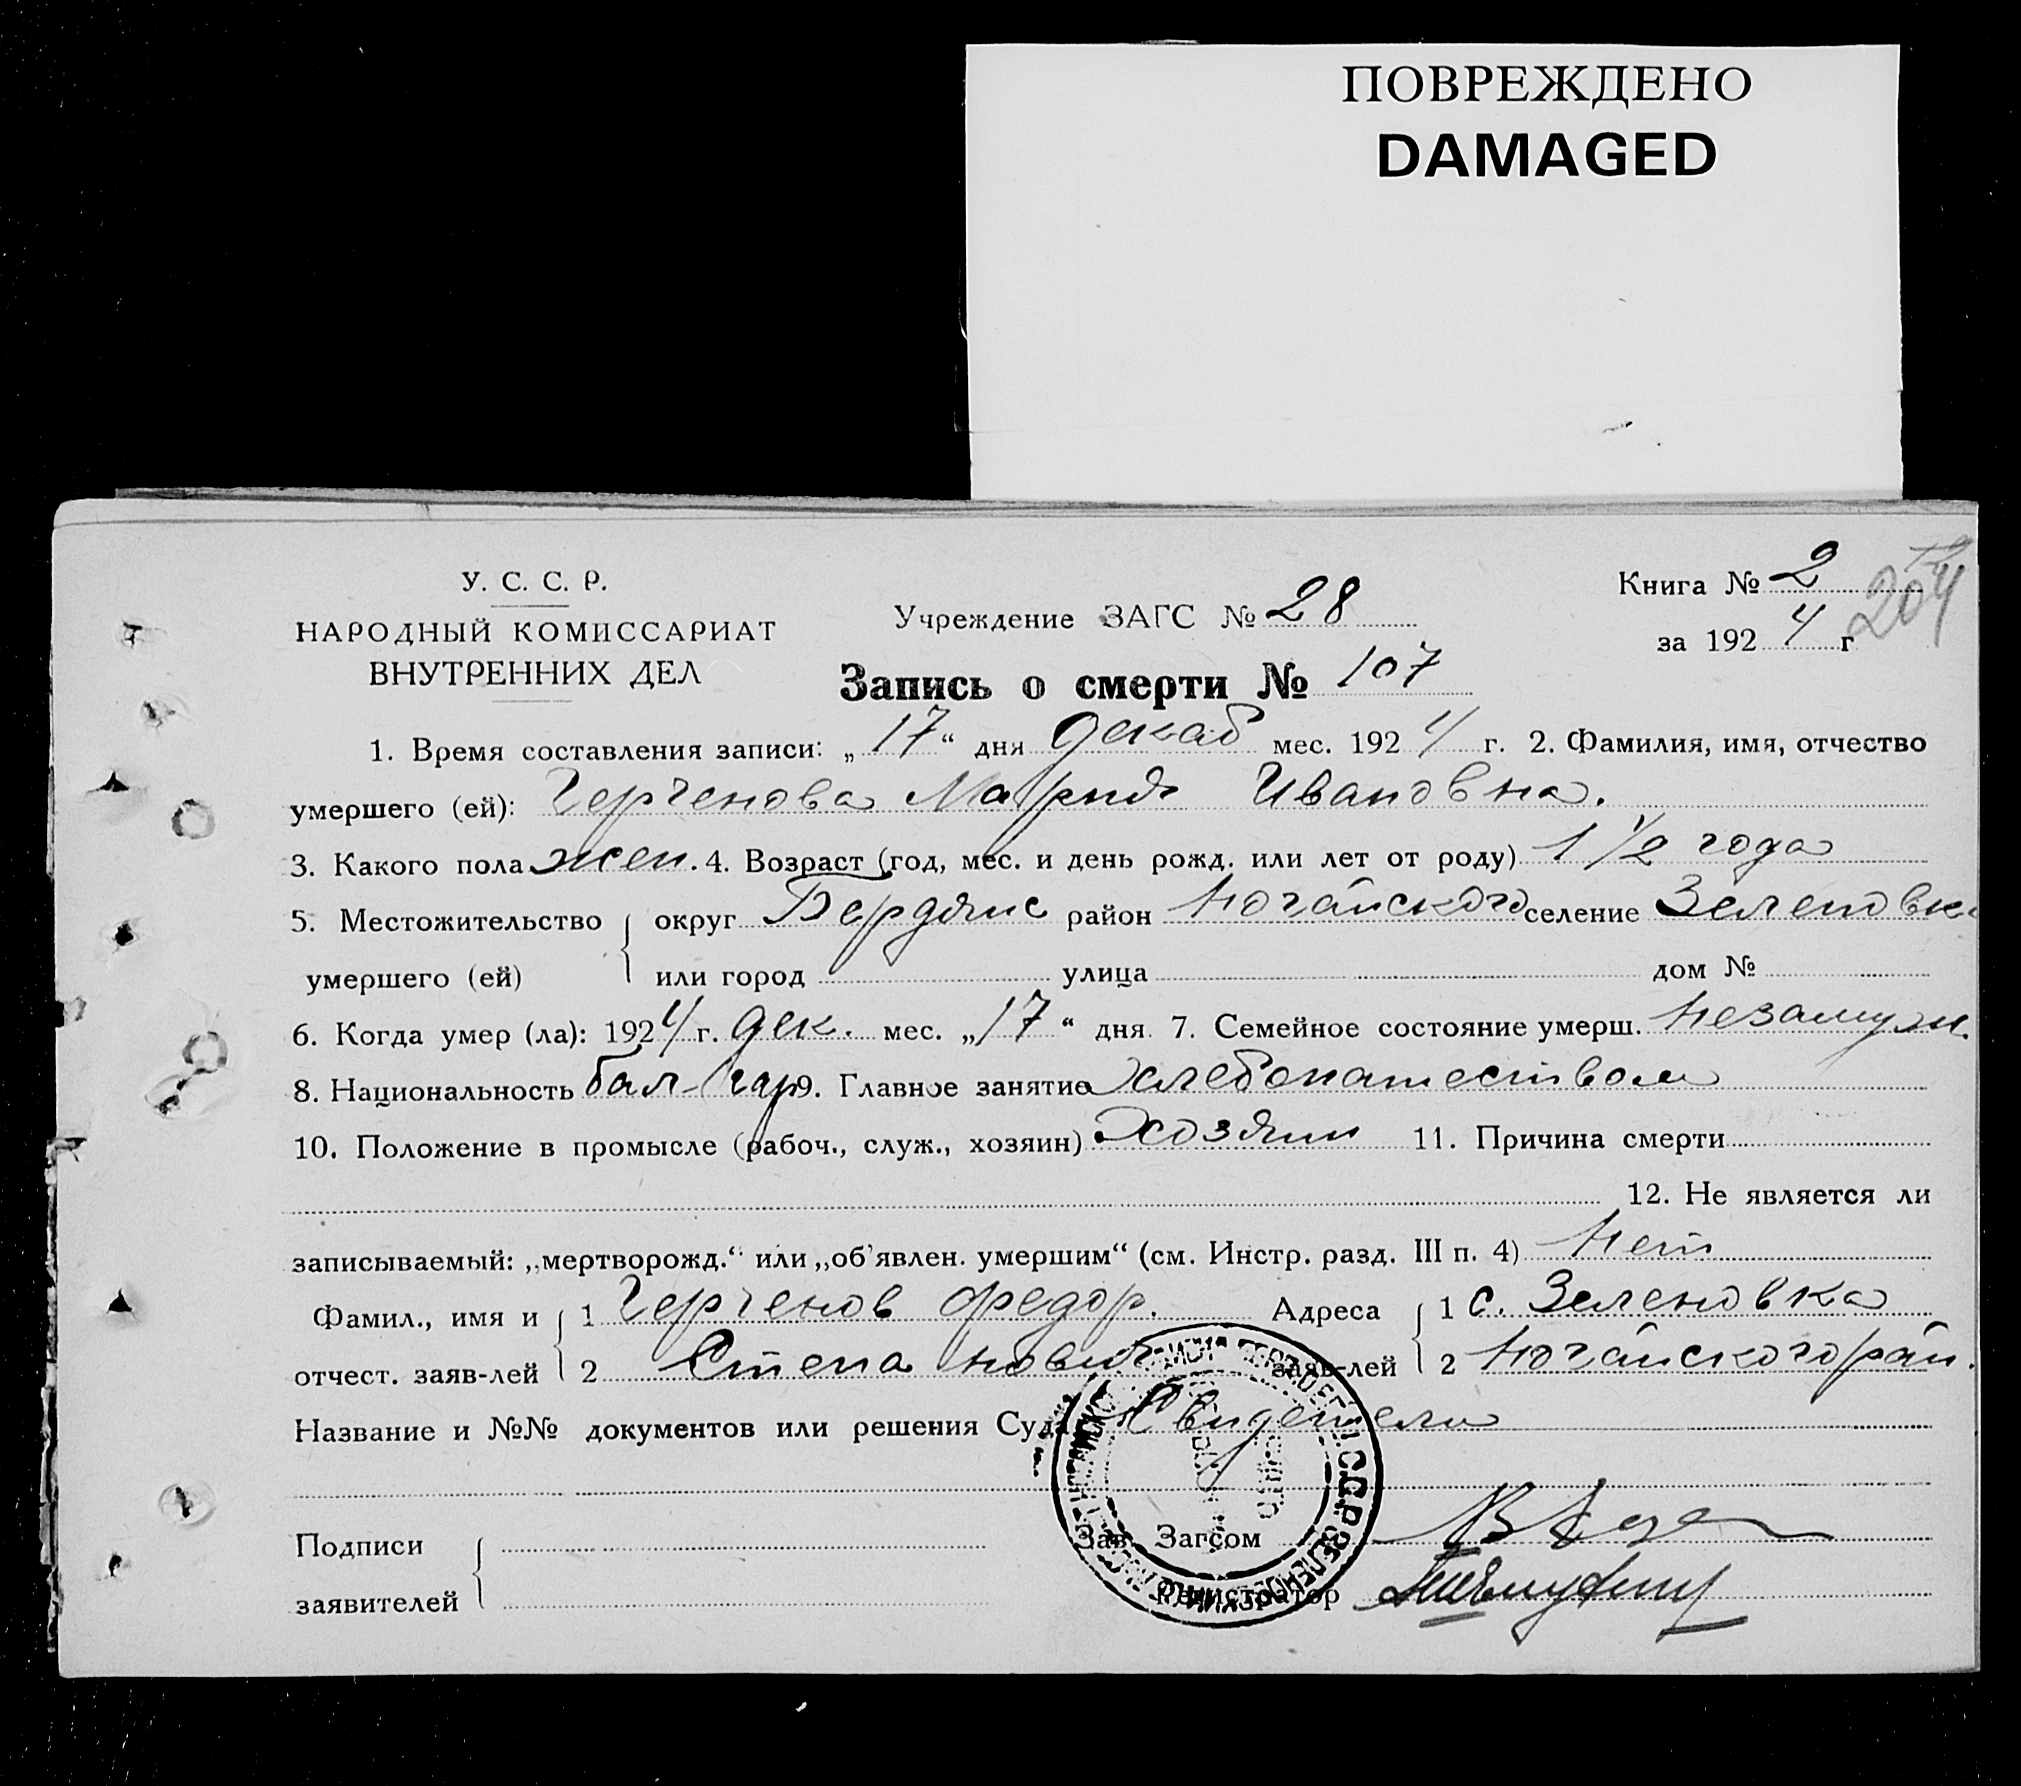 ПОВРЕЖДЕНО
DAMAGED
У. С. С. Р.
НАРОДНЫЙ КОМИССАРИАТ
ВНУТРЕННИХ ДЕЛ
Учреждение ЗАГС № 28
Книга № 2
за 1924 г
204
Запись о смерти № 107
1. Время составления записи: „17“ дня декаб мес. 1924 г. 2. Фамилия, имя, отчество
умершего (ей): Герченова Мария Ивановна.
3. Какого пола жен. 4. Возраст (год, мес. и день рожд. или лет от роду) 1 1/2 года
5. Местожительство округ Бердянс район Ногайского селение Зеленовка
умершего (ей) или город улица дом №
6. Когда умер (ла): 1924 г. дек. мес. „17“ дня 7. Семейное состояние умерш. незамуж.
8. Национальность бол-гар 9. Главное занятие хлебопашеством
10. Положение в промысле (рабоч., служ., хозяин) хозяин 11. Причина смерти
12. Не является ли
записываемый: „мертворожд.“ или „об’явлен. умершим“ (см. Инстр. разд. III п. 4) нет
Фамил., имя и 1 Герченов Федор. Адреса 1 с. Зеленовка
отчест. заяв-лей 2 Степанович заяв-лей 2 Ногайского рай.
Название и №№ документов или решения Суда Свидетели
Подписи Зав. Загсом
заявителей Регистратор